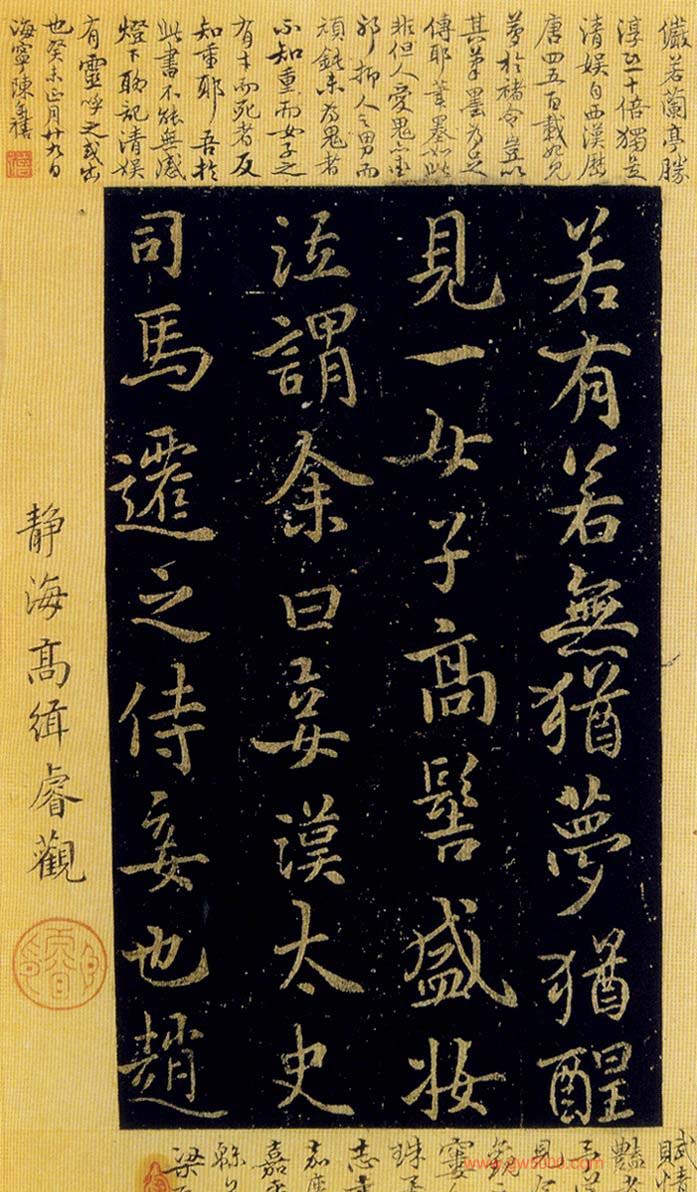 儼若蘭亭勝
十倍獨是
清娛自西漢歷
唐四五百載如見
夢於褚令豈以
其筆墨為足
傳耶筆墨如此
非但人愛鬼亦
邪抑人之男而
頑鈍未為鬼者
不知重而女子之
有才而死者反
知重耶吾於
此書不能無感
燈下聊記清娛
有靈呼之或出
也癸未正月廿九日
海寧陳奕禧
若有若無猶夢猶醒
見一女子高髻盛妝
泣謂余曰妾漢太史
司馬遷之侍妾也趙
靜海高緝睿觀
賦情
豔
珠
志
嘉
梁